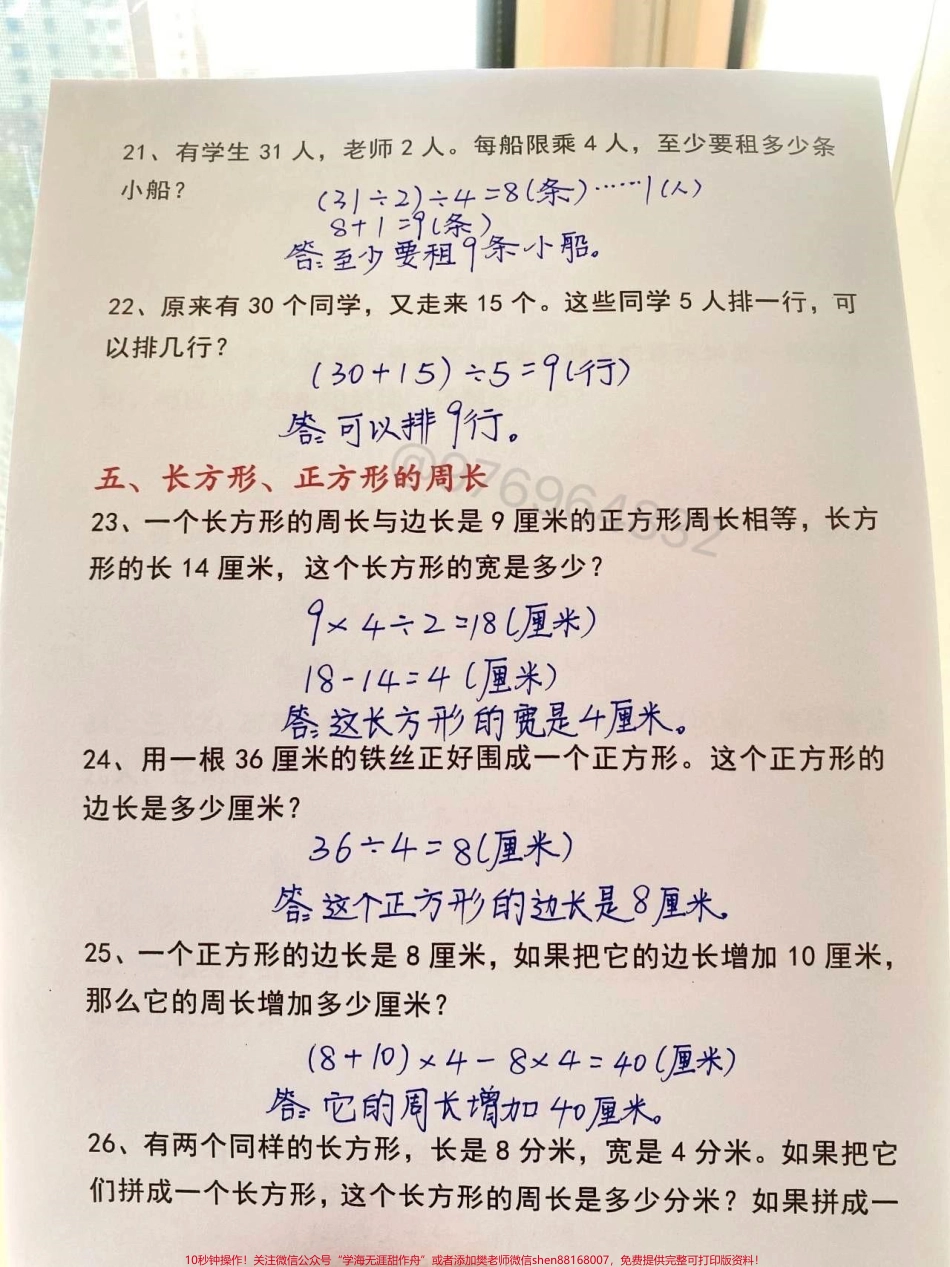 21、有学生 31 人，老师 2 人。每船限乘 4 人，至少要租多少条
小船？
(31÷2)÷4=8(条)……1(人)
8+1=9(条)
答:至少要租9条小船。
22、原来有 30 个同学，又走来 15 个。这些同学 5 人排一行，可
以排几行？
(30+15)÷5=9(行)
答:可以排9行。
五、长方形、正方形的周长
23、一个长方形的周长与边长是 9 厘米的正方形周长相等，长方
形的长 14 厘米，这个长方形的宽是多少？
9×4÷2=18(厘米)
18-14=4(厘米)
答:这长方形的宽是4厘米。
24、用一根 36 厘米的铁丝正好围成一个正方形。这个正方形的
边长是多少厘米？
36÷4=8(厘米)
答:这个正方形的边长是8厘米。
25、一个正方形的边长是 8 厘米，如果把它的边长增加 10 厘米，
那么它的周长增加多少厘米？
(8+10)×4-8×4=40(厘米)
答:它的周长增加40厘米。
26、有两个同样的长方形，长是 8 分米，宽是 4 分米。如果把它
们拼成一个长方形，这个长方形的周长是多少分米？如果拼成一
10秒钟操作！关注微信公众号“学海无涯甜作舟”或者添加樊老师微信shen88168007，免费提供完整可打印版资料！